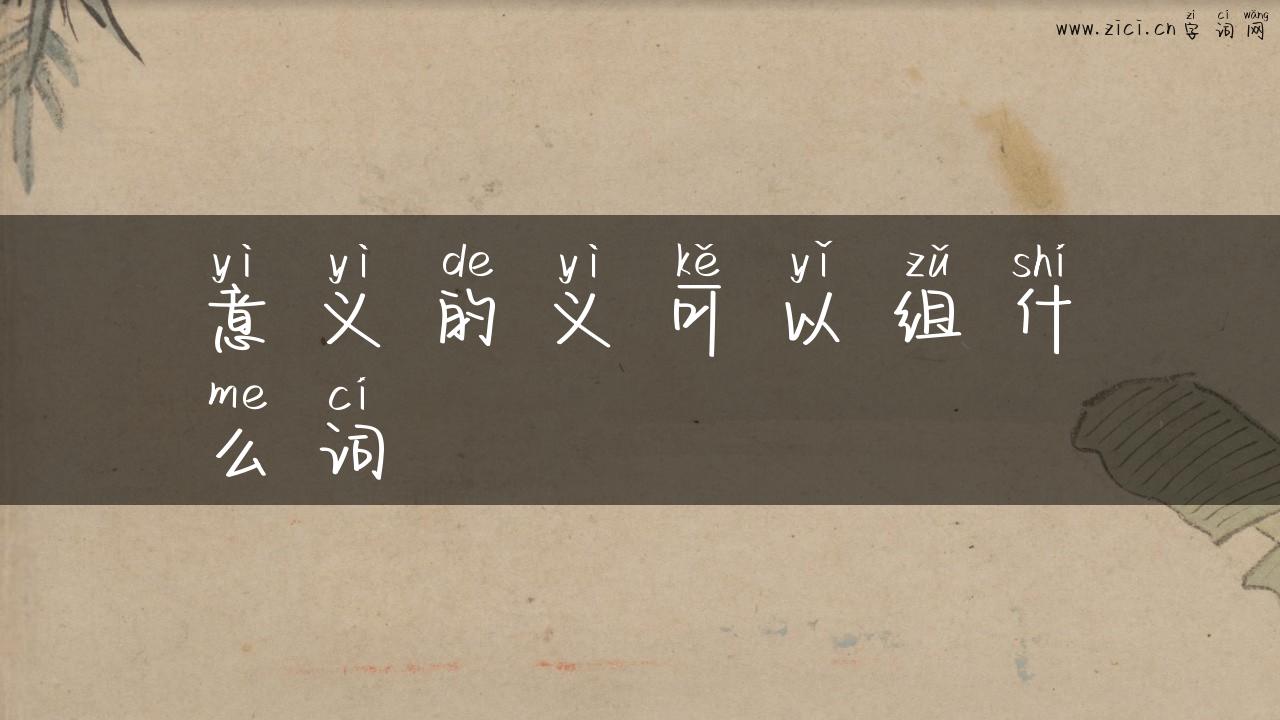 zì cí wǎng
www.zici.cn 字词网
yì yì de yì kě yǐ zǔ shí
意义的义可以组什
me cí
么词